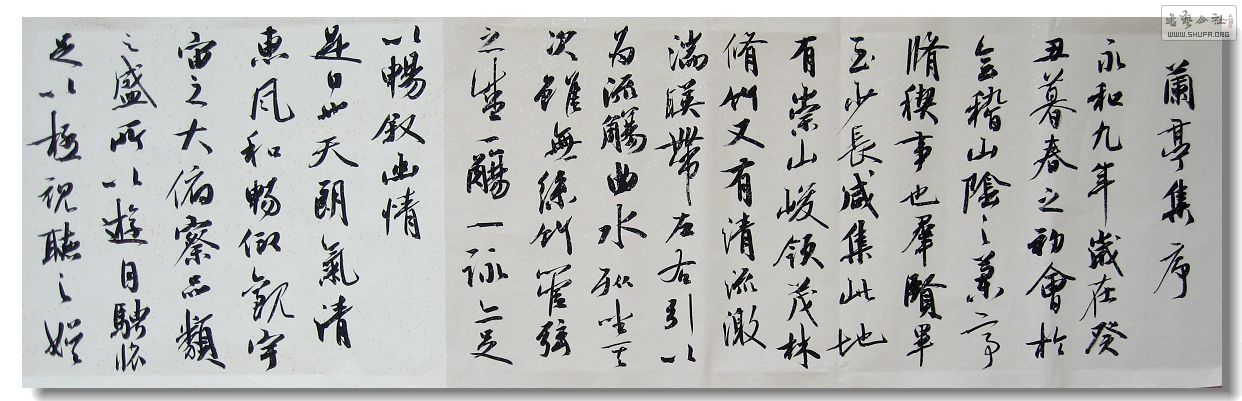 蘭亭集序
永和九年歲在癸
丑暮春之初會於
會稽山陰之蘭亭
脩稧事也羣賢畢
至少長咸集此地
有崇山峻領茂林
脩竹又有清流激
湍暎帶左右引以
為流觴曲水列坐其
次雖無絲竹管弦
之盛一觴一詠亦足
以暢叙幽情
是日也天朗氣清
惠風和暢仰觀宇
宙之大俯察品類
之盛所以遊目騁懷
足以極視聽之娛
書藝公社
WWW.SHUFA.ORG